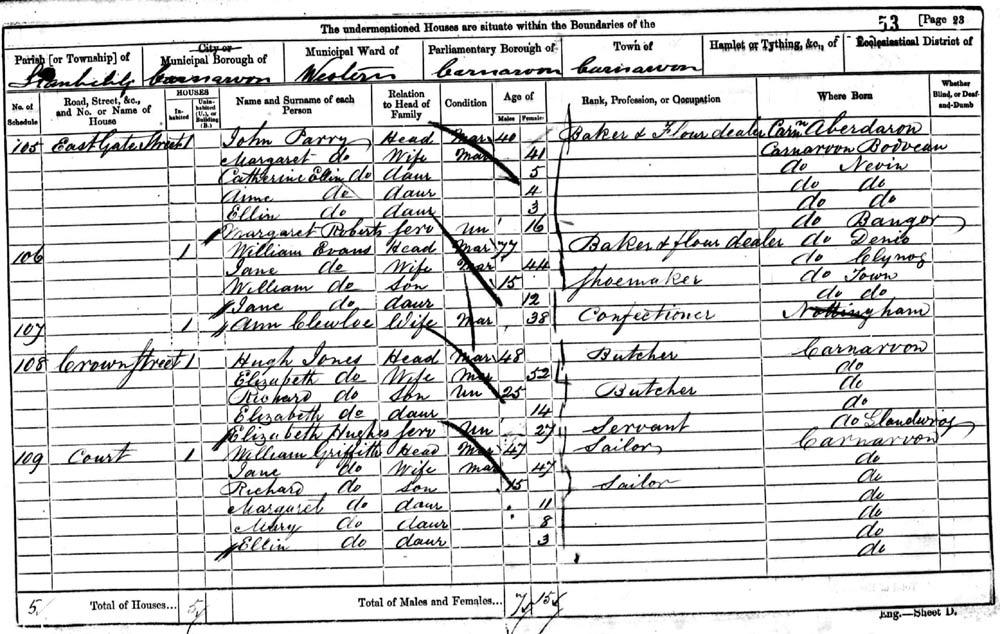 The undermentioned Houses are situate within the Boundaries of the
53 [Page 23
Parish [or Township] of City or Municipal Borough of Municipal Ward of Parliamentary Borough of Town of Hamlet or Tything, &c., of Ecclesiastical District of
Carnarvon Western Carnarvon Carnarvon
No. of Schedule Road, Street, &c., and No. or Name of House HOUSES Inhabited Uninhabited (U.), or Building (B.) Name and Surname of each Person Relation to Head of Family Condition Age of Males Females Rank, Profession, or Occupation Where Born Whether Blind, or Deaf-and-Dumb
105 East Gate Street 1 John Parry Head Mar 40 Baker & Flour dealer Carn Aberdaron
Margaret do Wife Mar 41 Carnarvon Bodvean
Catherine Ellin do daur 5 do Nevin
do daur 4 do do
Ellin do daur 3 do do
Margaret Roberts Serv Un 16 do Bangor
106 1 William Evans Head Mar 77 Baker & flour dealer do Denio
Jane do Wife Mar 44 do Clynog
William do Son 15 Shoemaker do Town
Jane do daur 12 do do
107 1 Ann Clewloe Wife Mar 38 Confectioner Nottingham
108 Crown Street 1 Hugh Jones Head Mar 48 Butcher Carnarvon
Elizabeth do Wife Mar 52 do
Richard do Son Un 25 Butcher do
Elizabeth do daur 14 do
Elizabeth Hughes Serv Un 27 Servant do Llandwrog
109 Court 1 William Griffith Head Mar 47 Sailor Carnarvon
Jane do Wife Mar 47 do
Richard do Son 15 Sailor do
Margaret do daur 11 do
Mary do daur 8 do
Ellin do daur 3 do
5 Total of Houses... 5 Total of Males and Females... 7 15
Eng.—Sheet D.